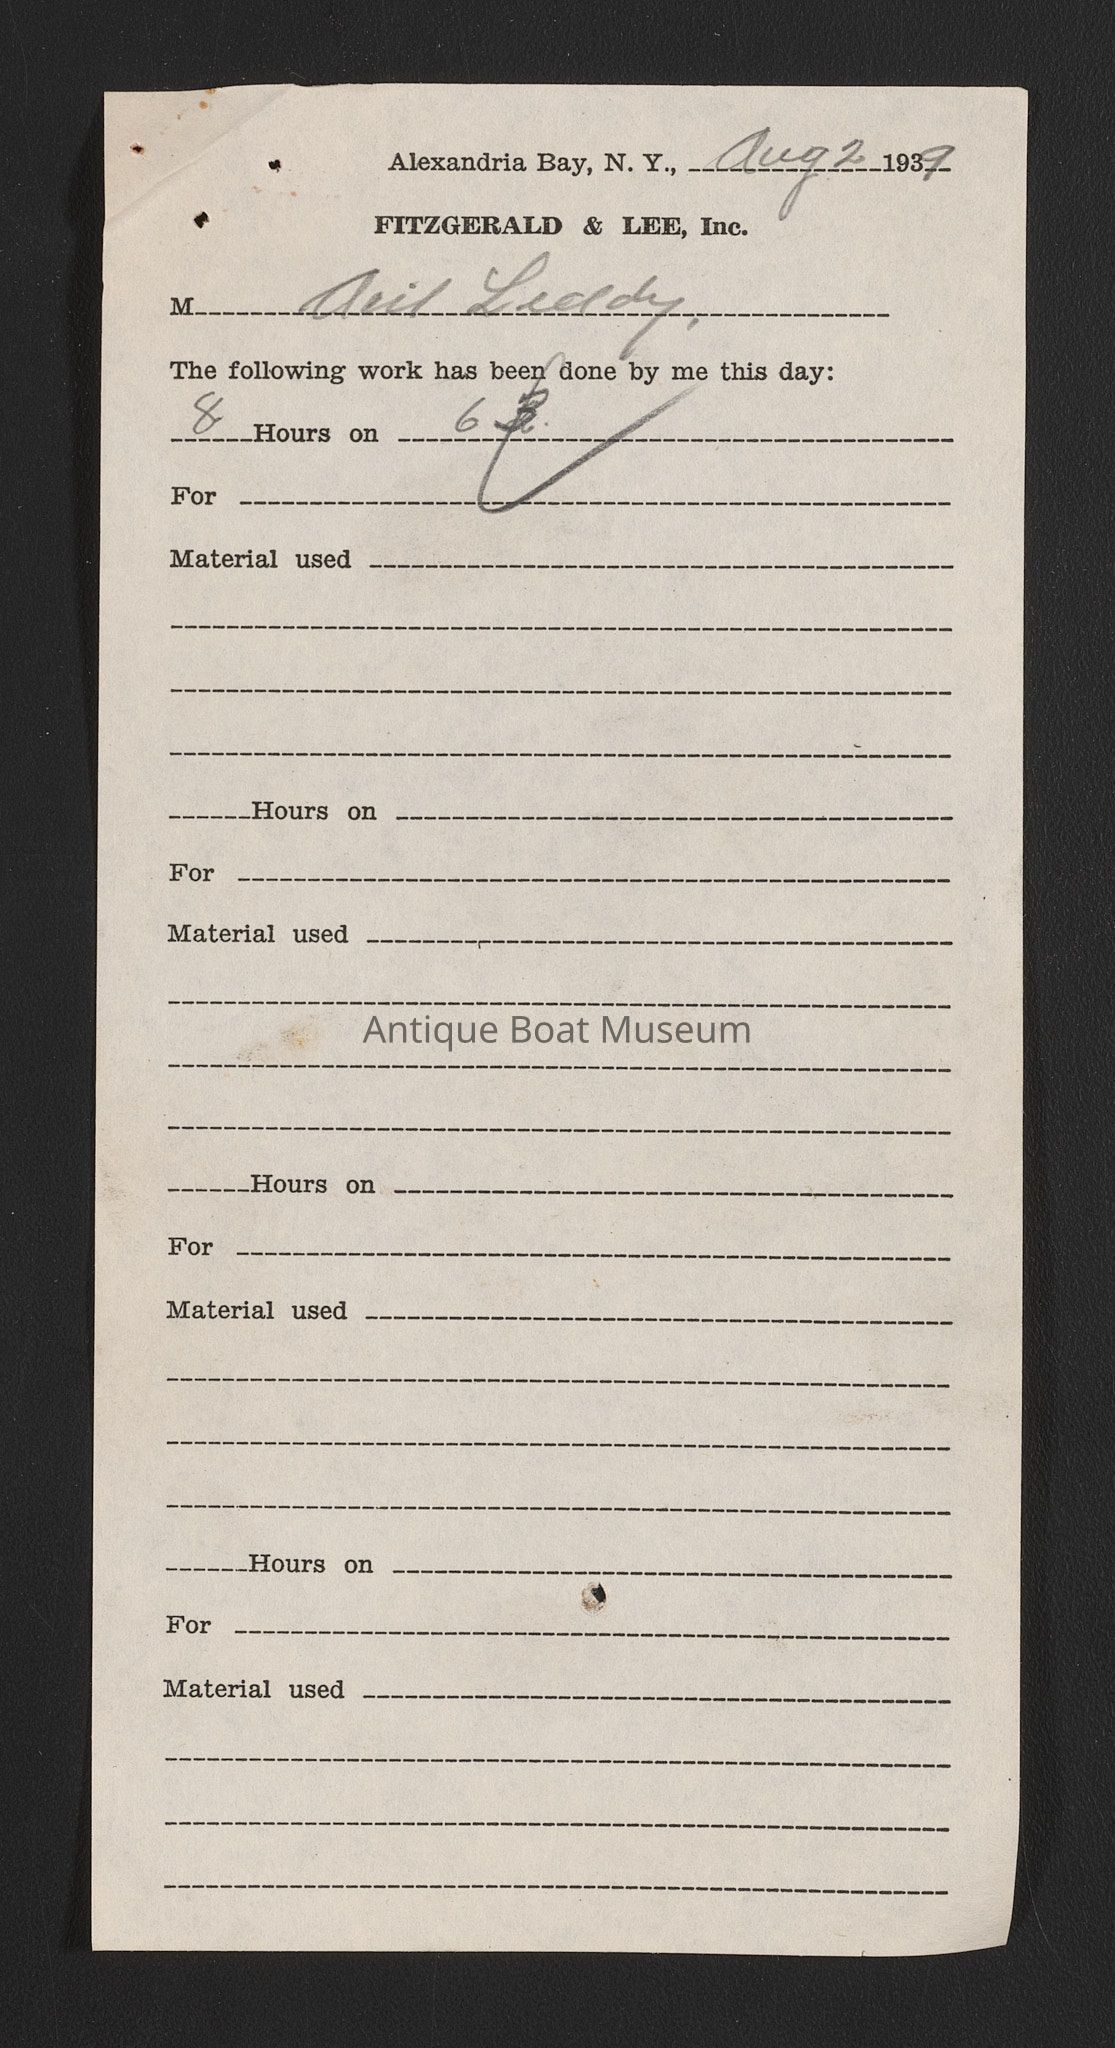 Alexandria Bay, N. Y., Aug 2 1939
FITZGERALD & LEE, Inc.
M Leddy,
The following work has been done by me this day:
8 Hours on 6
For
Material used
Hours on
For
Material used
Antique Boat Museum
Hours on
For
Material used
Hours on
For
Material used